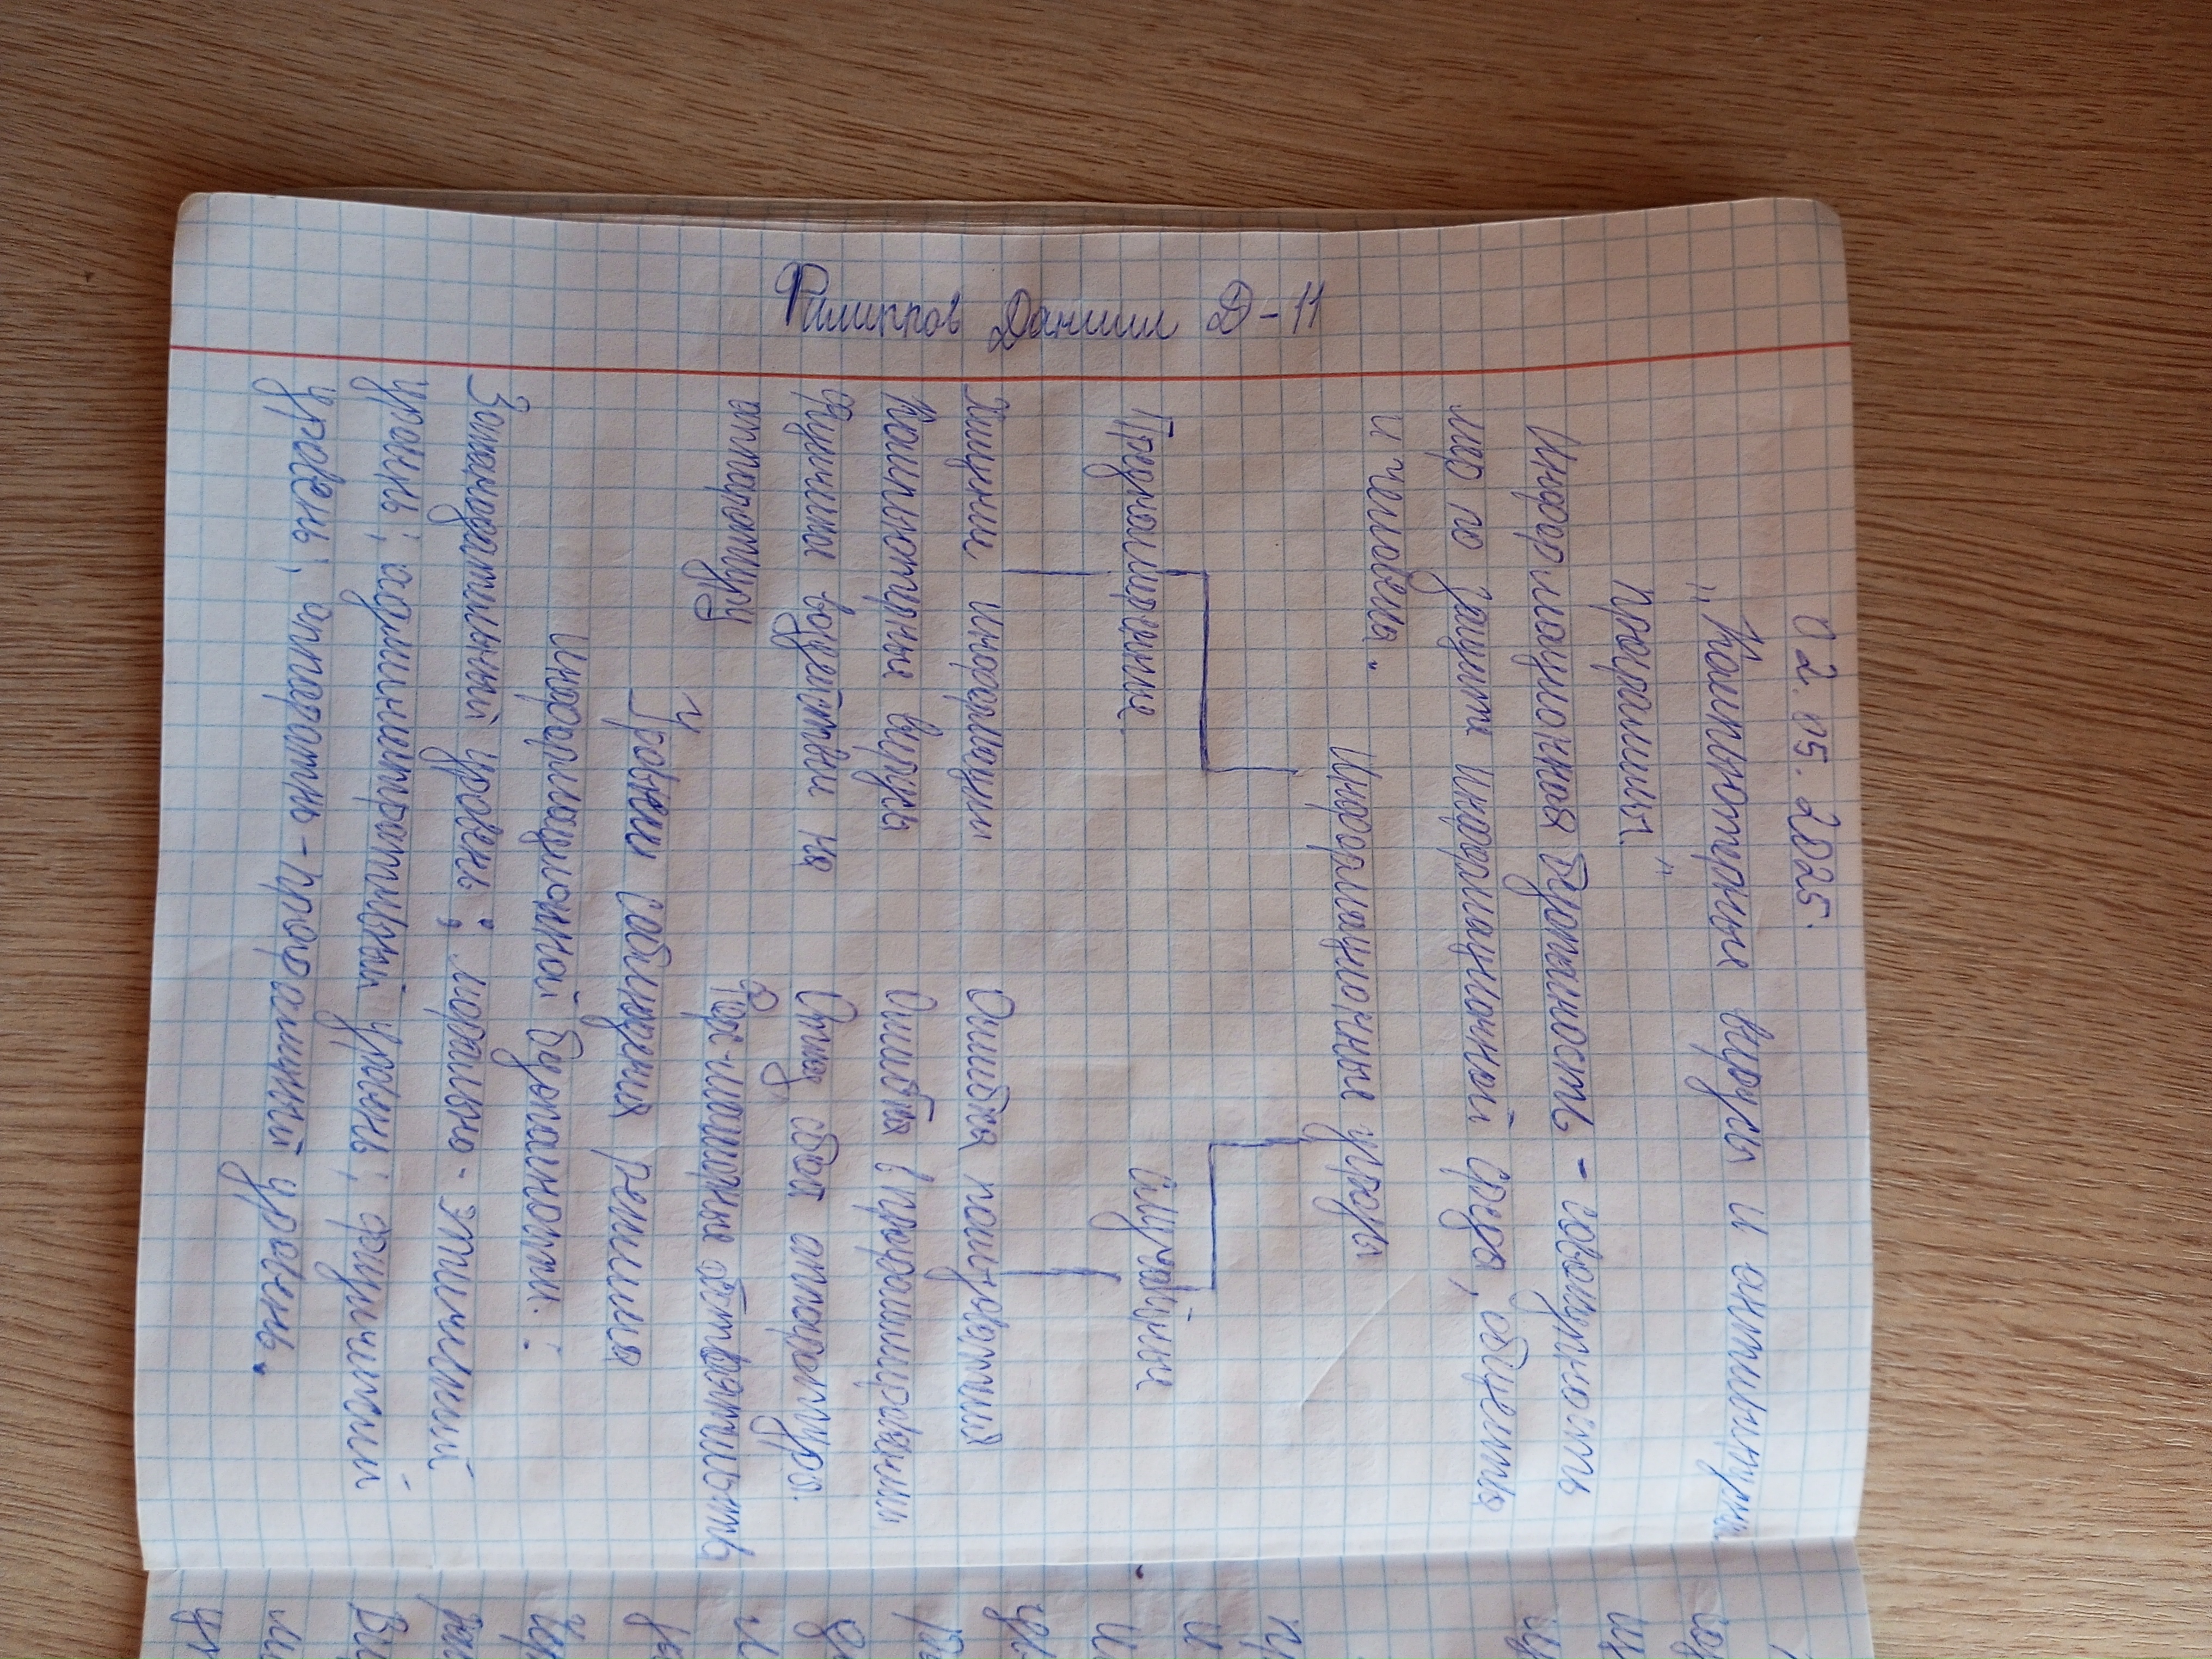 Филиппов Даниил Д-11
02.05.2025.
"Компьютерные вирусы и антивирусные
программы."
Информационная безопасность - совокупность
мер по защите информационной среды, общества
и человека.
Информационные угрозы
Преднамеренные
Случайные
Хищение информации
Компьютерные вирусы
Физическое воздействие на
аппаратуру
Ошибки пользователя
Ошибки в программировании
Отказ, сбой аппаратуры.
Форс-мажорные обстоятельства
Уровни соблюдения режима
информационной безопасности. :
Законодательный уровень; морально-этический
уровень; административный уровень; физический
уровень; аппаратно-программный уровень.